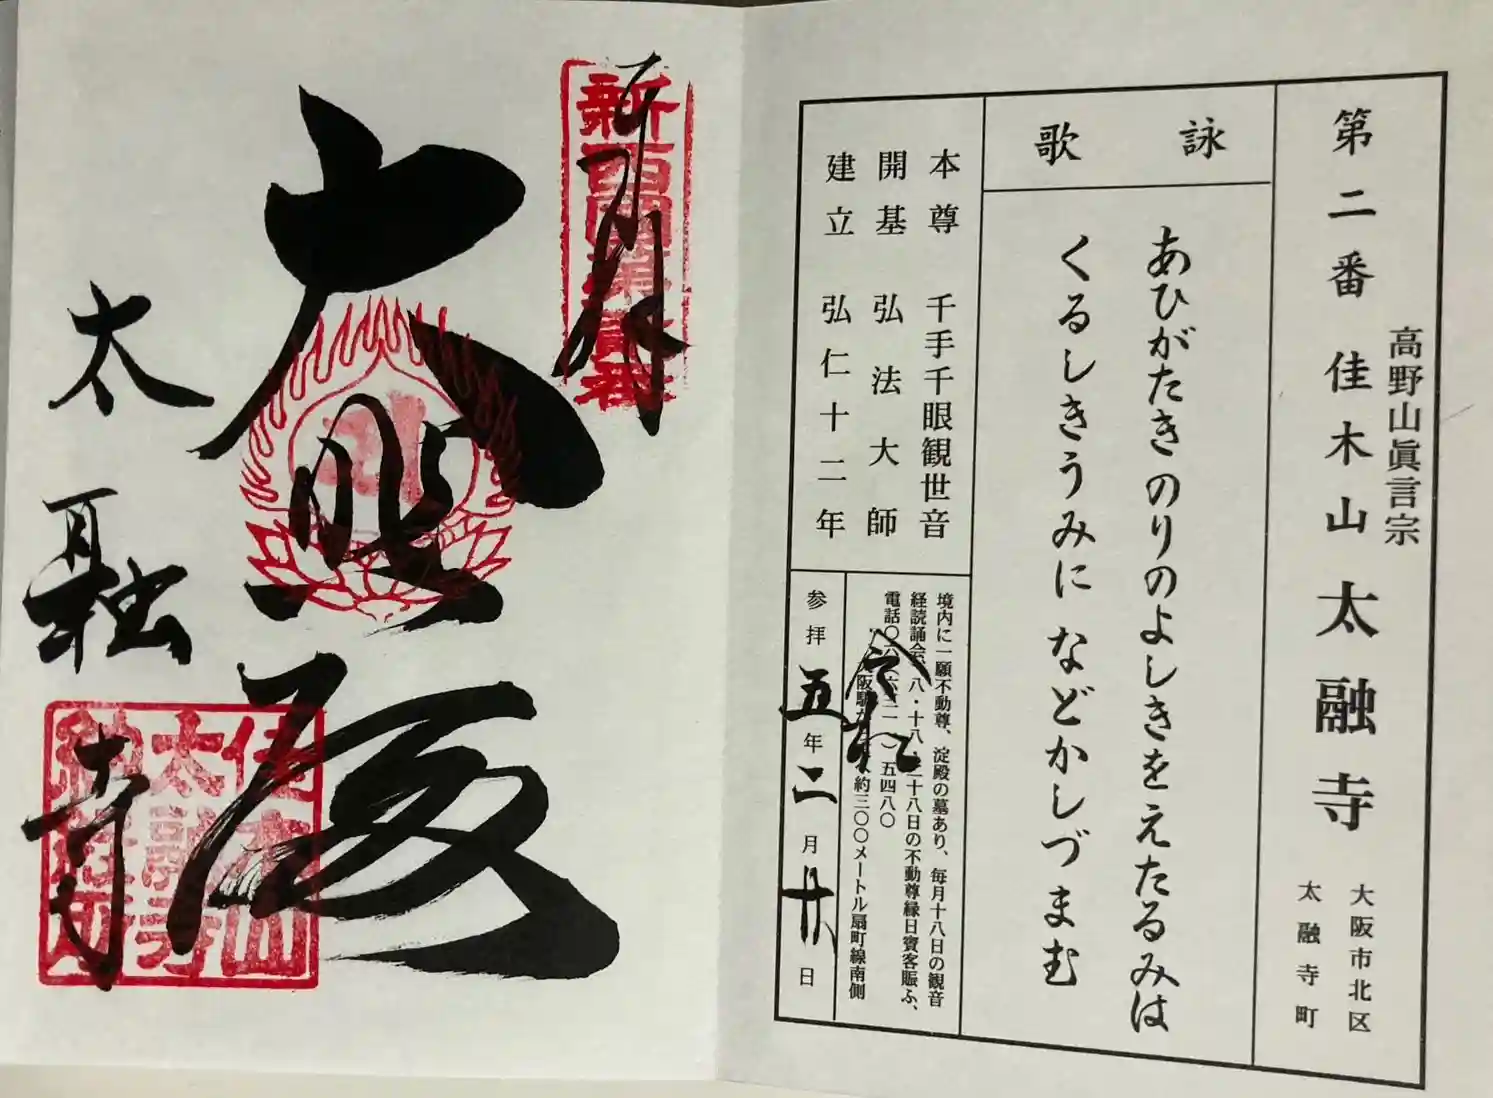 第二番 佳木山 太融寺
高野山眞言宗
大阪市北区
太融寺町
詠歌
あひがたきのりのよしきをえたるみは
くるしきうみになどかしづまむ
本尊 千手千眼観世音
開基 弘法大師
建立 弘仁十二年
境内に一願不動尊、淀殿の墓あり、毎月十八日の観音
経読誦会、八・十八・二十八日の不動尊縁日賓客賑ふ、
約三〇〇メートル扇町線南側
令和
参拝 五年二月廿日
奉拝
新西国第貳番
大悲殿
太融寺
佳木山
太融寺
納経所